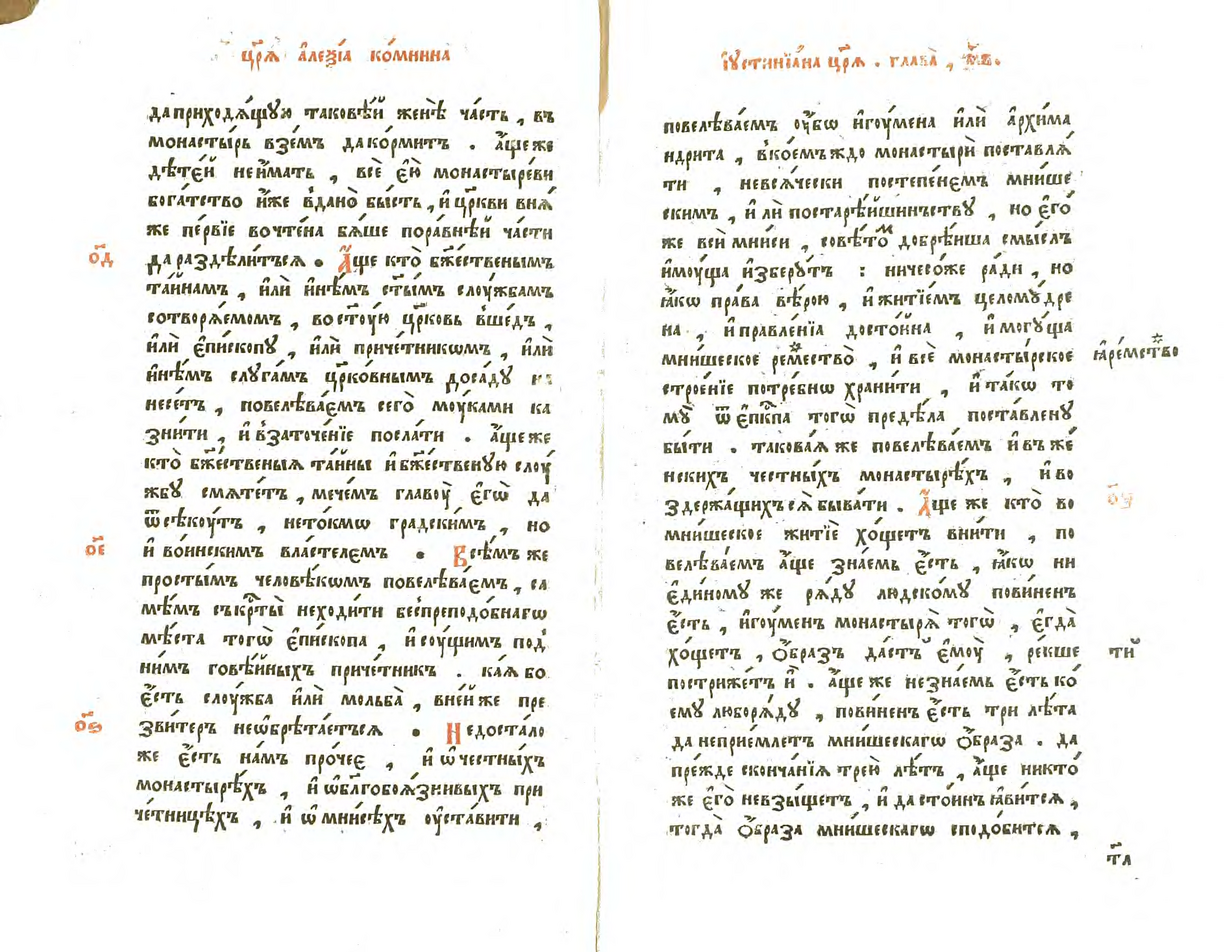 цр҃ѧ̀ а҆леѯі́а ко́мнина
да приходѧ́щꙋю такове́й женѣ̀ ча́сть , въ
монасты́рь взе́мъ да ко́рмитъ . а҆́ще же
дѣте́й неи҆́мать , всѐ є҆ю̀ монастыре́ви
бога́тство и҆́же в̾дано̀ бы́сть , и҆ цр҃кви внѧ́
же пе́рвїе вочте́на бѧ́ше пора́внѣй ча́сти
о҃д
да раздѣли́тьсѧ . А҆́ще кто̀ бж҃е́ственымъ
та́йнамъ , и҆лѝ и҆нѣ́мъ ст҃ы́мъ слоу́жбамъ
сотворѧ́емомъ , во ст҃оу́ю цр҃ковь в̾ше́дъ ,
и҆лѝ є҆пи́скопꙋ , и҆лѝ приче́тникѡмъ , и҆лѝ
и҆нѣ́мъ слꙋга́мъ цр҃ко́внымъ доса́дꙋ
несе́тъ , повелѣва́ємъ сего̀ моу́ками ка
зни́ти , и҆ в̾заточе́нїе посла́ти . а҆́ще же
кто̀ бж҃е́ственыѧ та́йны и҆ бж҃е́ственꙋю слоу́
жбꙋ смѧте́тъ , мече́мъ главоу̀ є҆гѡ̀ да
ѿсѣкоу́тъ , нето́кмѡ гра́дскимъ , но
о҃є
и҆ во́инскимъ власте́лємъ . Всѣ́мъ же
просты́мъ человѣ́кѡмъ повелѣва́ємъ , са
мѣ́мъ съ кр҃ты̀ неходи́ти бе́спреподо́бнагѡ
мѣ́ста тогѡ̀ є҆пи́скопа , и҆ соу́щимъ под̾
ни́мъ говѣ́йныхъ приче́тникъ . ка́ѧ бо
є҆́сть слоу́жба и҆лѝ мольба̀ , вне́йже пре
о҃ѕ
зви́теръ неѡ҆брѣта́єтьсѧ . Недоста́ло
же є҆́сть на́мъ про́чеє , и҆ ѡ҆ че́стныхъ
монастырѣ́хъ , и҆ ѡ҆ бл҃гобоѧ́знивыхъ при
че́тницѣхъ , и҆ ѡ҆ мни́сѣхъ оу҆ста́вити ,
І҆ꙋстинїа́на цр҃ѧ̀ . глава̀ , м҃в .
повелѣва́емъ оу҆́бѡ и҆гоу́мена и҆лѝ а҆рхима
ндри́та , в̾ко́емъждо монастырѝ поставлѧ́
ти , невсѧ́чески постепе́немъ мни́ше
скимъ , и҆ лѝ поста́рѣйшинъствꙋ , но є҆го́
же всѝ мни́си , совѣ́томъ добрѣ́йша смы́слъ
и҆мꙋ́ща и҆зберꙋ́тъ : ничесо́же ра́ди , но
ꙗ҆́кѡ пра́ва вѣ́рою , и҆ житїе́мъ целомꙋ́дре
на , и҆ правле́нїа досто́йна , и҆ могꙋ́ща
мни́шеское реме́ство̀ , и҆ всѐ монасты́рское
ꙗ҆ре́мство
строе́нїе потре́бнѡ храни́ти , и҆ та́кѡ то
мꙋ̀ ѿ є҆пк҃па тогѡ̀ предѣ́ла поста́вленꙋ
бы́ти . такова́ѧ же повелѣва́емъ и҆ въ же́
нскихъ че́стныхъ монастырѣ́хъ , и҆ во
о҃з
здержа́щихъсѧ̀ быва́ти . А҆́ще же кто̀ во
мни́шеское житїѐ хо́щетъ вни́ти , по
велѣва́емъ а҆́ще зна́емь є҆́сть , ꙗ҆́кѡ ни
є҆ди́номꙋ же рѧ́дꙋ людско́мꙋ пови́ненъ
є҆́сть , и҆гоу́менъ монастырѧ̀ тогѡ̀ , є҆гда̀
хо́щетъ , ѻ҆́бразъ да́стъ є҆моу̀ , ре́кше
ти
пострижѐтъ и҆̀ . а҆́ще же незна́емь є҆́сть ко́
емꙋ люборѧ́дꙋ , пови́ненъ є҆́сть три лѣ́та
да неприе́млетъ мни́шескагѡ ѻ҆́браза . да
пре́жде сконча́нїѧ трею̀ лѣ́тъ , а҆́ще никто́
же є҆го̀ невзы́щетъ , и҆ да сто́инъ ꙗ҆ви́тсѧ ,
тогда̀ ѻ҆́браза мни́шескагѡ сподо́битсѧ ,
т҃л